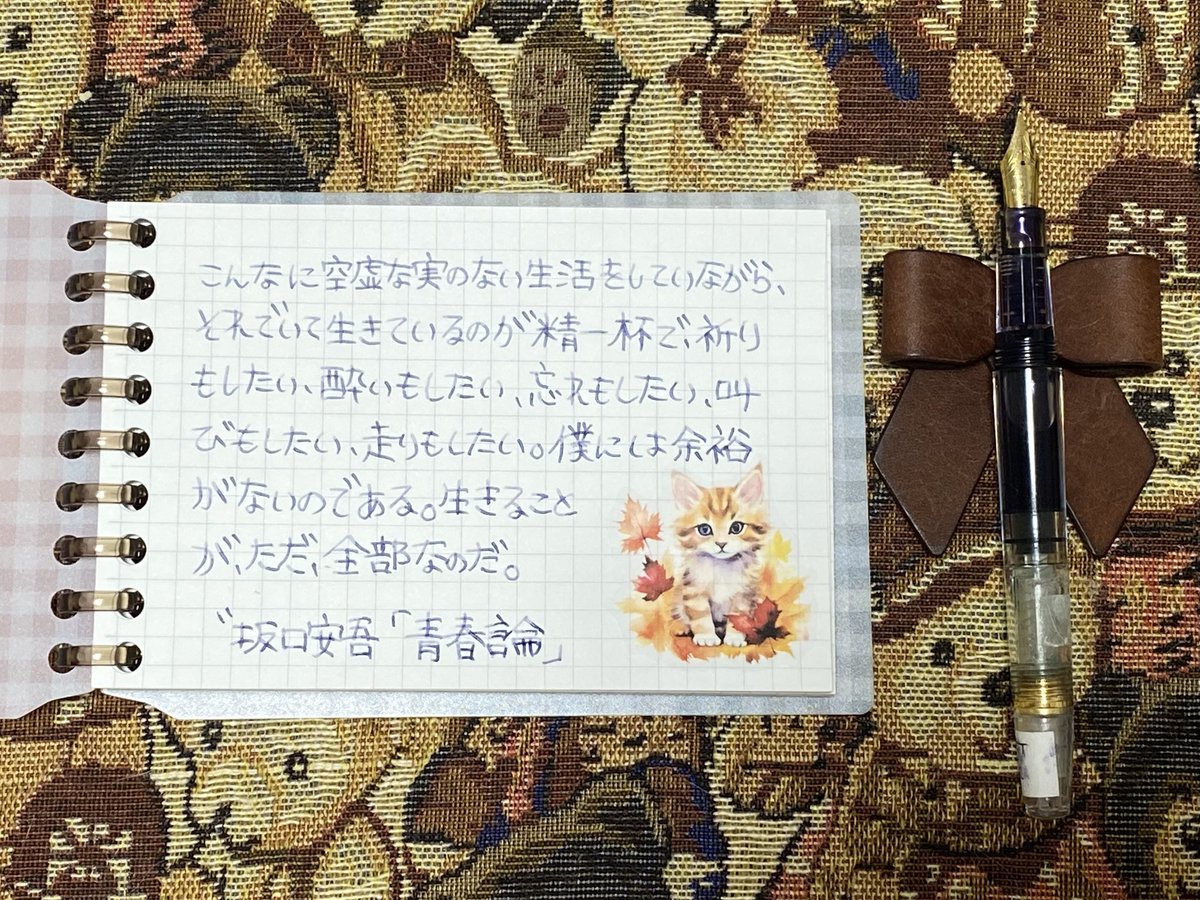 こんなに空虚な実のない生活をしていながら、
それでいて生きているのが精一杯で、祈り
もしたい、酔いもしたい、忘れもしたい、叫
びもしたい、走りもしたい。僕には余裕
がないのである。生きること
が、ただ、全部なのだ。
坂口安吾「青春論」